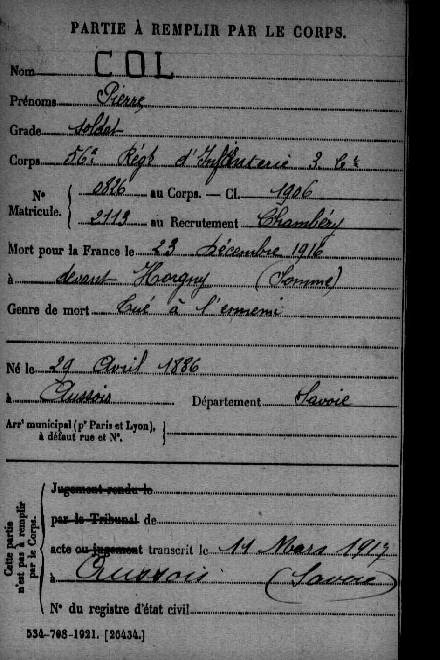 PARTIE À REMPLIR PAR LE CORPS.
Nom COL
Prénoms Pierre
Grade soldat
Corps 56e Régt d'Infanterie 3 Cie
Nº Matricule. 0826 au Corps. — Cl. 1906
2113 au Recrutement Chambéry
Mort pour la France le 23 Décembre 1916
à devant Horgny (Somme)
Genre de mort Tué à l'ennemi
Né le 29 Avril 1886
à Aussois Département Savoie
Arrt municipal (pr Paris et Lyon),
à défaut rue et Nº.
Cette partie
n'est pas à remplir
par le Corps.
Jugement rendu le
par le Tribunal de
acte ou jugement transcrit le 11 Mars 1917
à Aussois (Savoie)
Nº du registre d'état civil
534-708-1921. [26434.]